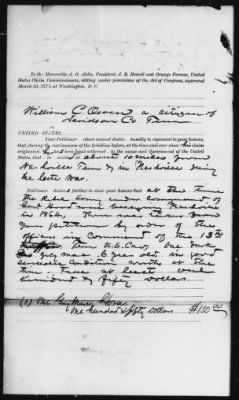 To the Honorable A. O. Aldis, President, J. B. Howell and Orange Ferriss, United
States Claim Commissioners, sitting under provisions of the Act of Congress, approved
March 3d, 1871, at Washington, D. C.
William C. a citizen of
Davidson Co Tenn
UNITED STATES.
Your Petitioner above named desires humbly to represent to your honors,
that, during the continuance of the Rebellion, before, at the time and ever since his claim
originated, he lived and loyal adherent to the cause and Government of the United
States, that he resided at about 10 miles from
Nashville Tenn & in Nashville during
the late War.
Petitioner stated further to show your honors that at the time
the Rebel Army under command of
Genl Hood were Nashville
in 1864, there was taken from
your petitioner by order of the
officer in Command of the 13th
Tenn U.S. Cav. One dark
grey mare 6 year old in good
condition worth at the
time at least one
hundred & fifty Dollars.
(1) One Grey Mare
One hundred & fifty Dollars $150.00